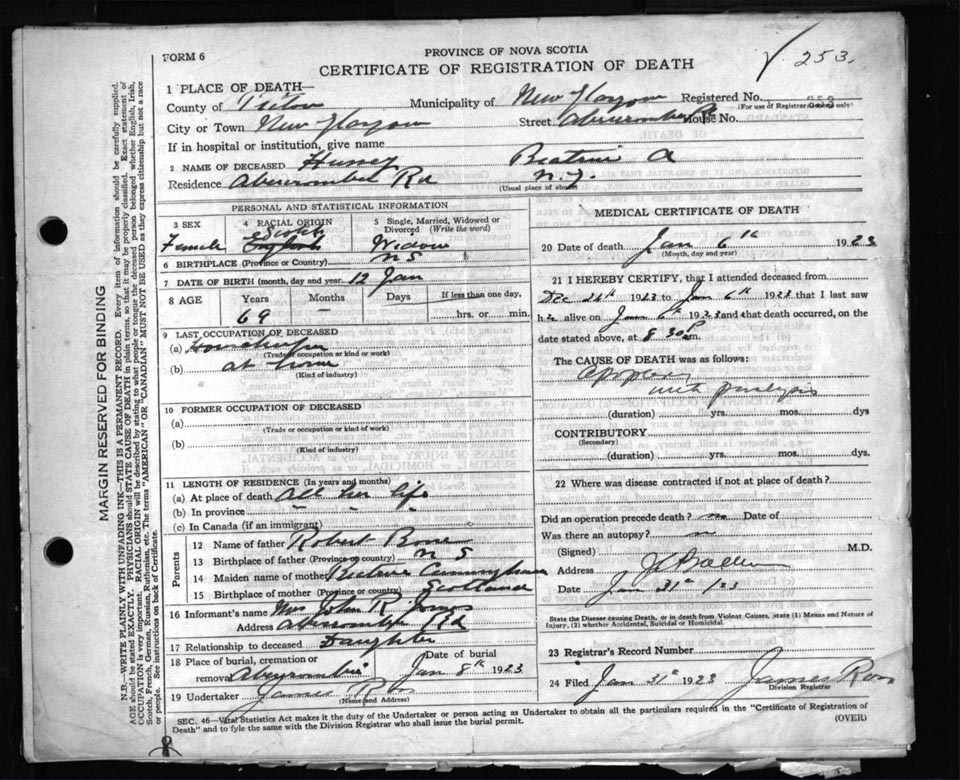 PROVINCE OF NOVA SCOTIA
FORM 6
CERTIFICATE OF REGISTRATION OF DEATH
253.
1 PLACE OF DEATH—
County of Pictou Municipality of New Glasgow Registered No. 253
(For use of Registrar General only)
City or Town New Glasgow Street Abercrombie Rd House No.
If in hospital or institution, give name
2 NAME OF DECEASED Beatrice A
Residence Abercrombie Rd N.G.
(Usual place of abode)
PERSONAL AND STATISTICAL INFORMATION
3 SEX Female
4 RACIAL ORIGIN Scotch English
5 Single, Married, Widowed or Divorced (Write the word) Widow
6 BIRTHPLACE (Province or Country) N S
7 DATE OF BIRTH (month, day and year) 12 Jan
8 AGE Years 69 Months — Days If less than one day, hrs. or min.
9 LAST OCCUPATION OF DECEASED
(a) Housekeeper
(Trade or occupation or kind of work)
(b) at home
(Kind of industry)
10 FORMER OCCUPATION OF DECEASED
(a)
(Trade or occupation or kind of work)
(b)
(Kind of industry)
11 LENGTH OF RESIDENCE (In years and months)
(a) At place of death All her life
(b) In province " " "
(c) In Canada (if an immigrant)
Parents
12 Name of father Robert
13 Birthplace of father (Province or country) N S
14 Maiden name of mother Cunningham
15 Birthplace of mother (Province or country) Scotland
16 Informant's name Mrs John R
Address Abercrombie Rd
17 Relationship to deceased Daughter
18 Place of burial, cremation or removal Abercrombie Date of burial Jan 8th 1923
19 Undertaker James Ross
(Name and Address)
MEDICAL CERTIFICATE OF DEATH
20 Date of death Jan 6th 1923
(Month, day and year)
21 I HEREBY CERTIFY, that I attended deceased from
Dec 24th 1923 to Jan 6th 1923 that I last saw
her alive on Jan 6th 1923 and that death occurred, on the
date stated above, at 8 30 P m.
The CAUSE OF DEATH was as follows:
Apoplexy
with paralysis
(duration) yrs. mos. dys
CONTRIBUTORY
(Secondary)
(duration) yrs. mos. dys.
22 Where was disease contracted if not at place of death?
Did an operation precede death? no Date of
Was there an autopsy? no
(Signed) M.D.
Address
Date Jan 31st /23
State the Disease causing Death, or in death from Violent Causes, state (1) Means and Nature of
Injury, (2) whether Accidental, Suicidal or Homicidal.
23 Registrar's Record Number
24 Filed Jan 31st 1923 James Ross
Division Registrar
SEC. 46—Vital Statistics Act makes it the duty of the Undertaker or person acting as Undertaker to obtain all the particulars required in the "Certificate of Registration of
Death" and to fyle the same with the Division Registrar who shall issue the burial permit.
(OVER)
MARGIN RESERVED FOR BINDING
N.B.—WRITE PLAINLY WITH UNFADING INK—THIS IS A PERMANENT RECORD. Every item of information should be carefully supplied.
AGE should be stated EXACTLY. PHYSICIANS should STATE CAUSE OF DEATH in plain terms, so that it may be properly classified. Exact statement of
OCCUPATION is very important. RACIAL ORIGIN will be described by stating to what people or tongue the deceased person belonged whether English, Irish,
Scotch, French, German, Russian, Ruthenian, etc. The terms "AMERICAN" OR "CANADIAN" MUST NOT BE USED as they express citizenship but not a race
or people. See instructions on back of Certificate.